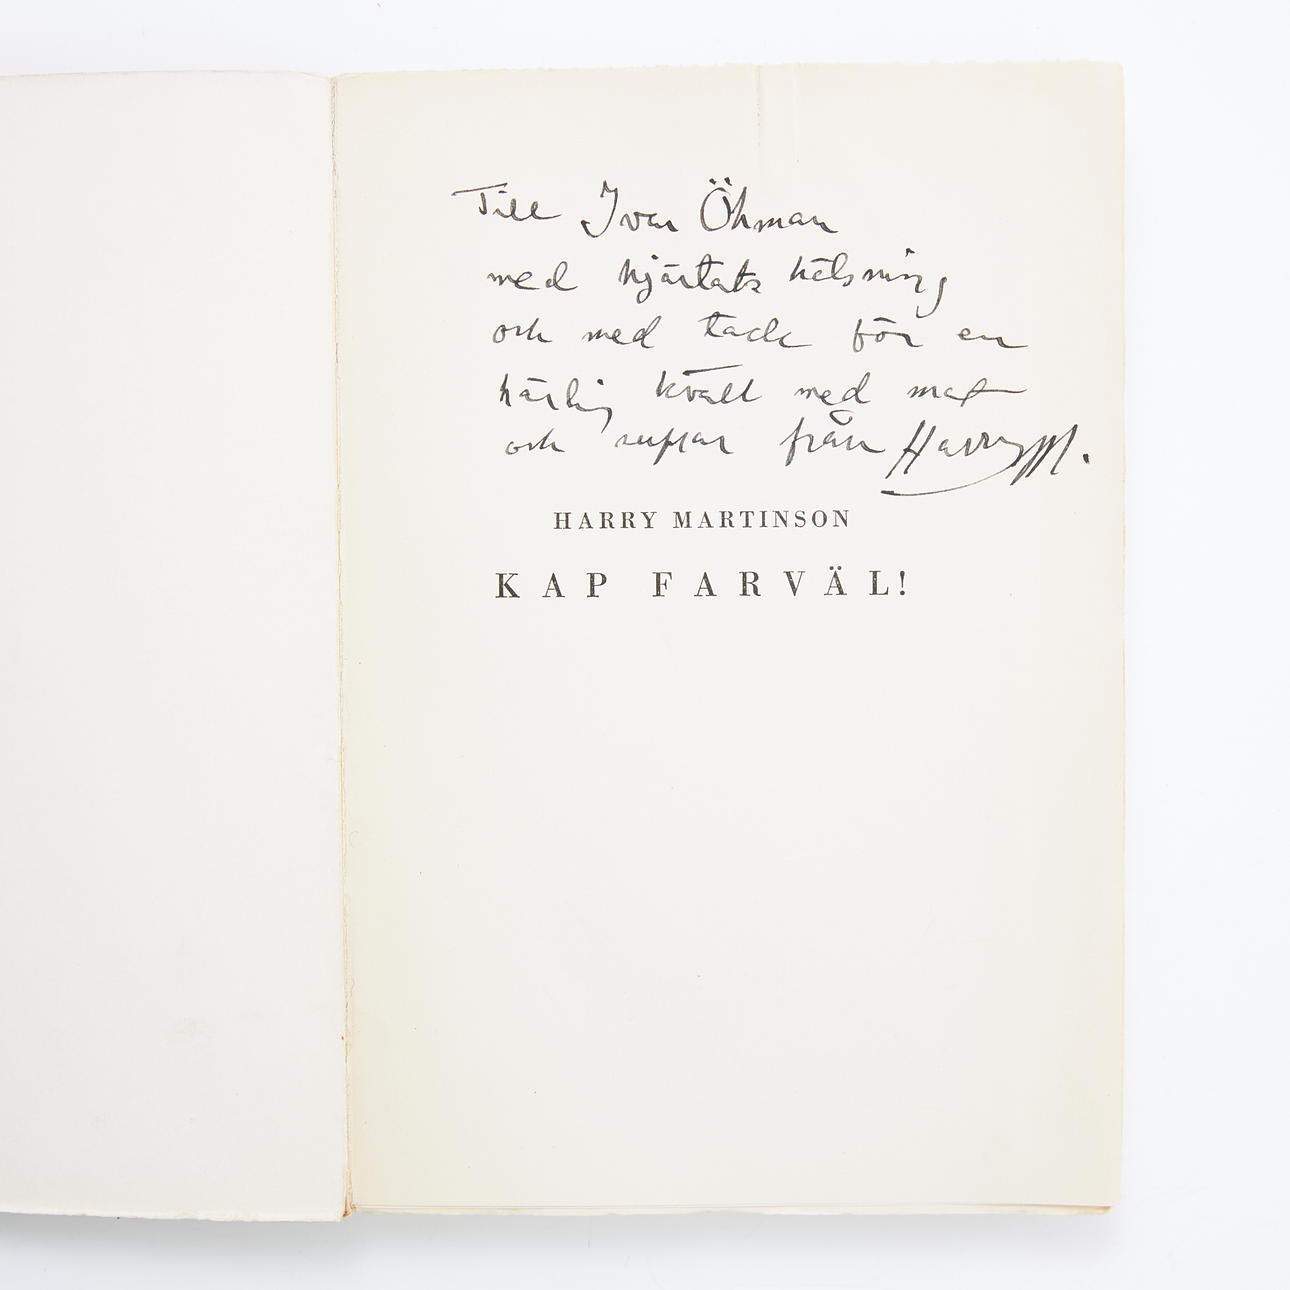 Till Ivar Öhman
med hjärtats hälsning
och med tack för en
härlig kväll med mat
och supar från Harry M.
HARRY MARTINSON
KAP FARVÄL!